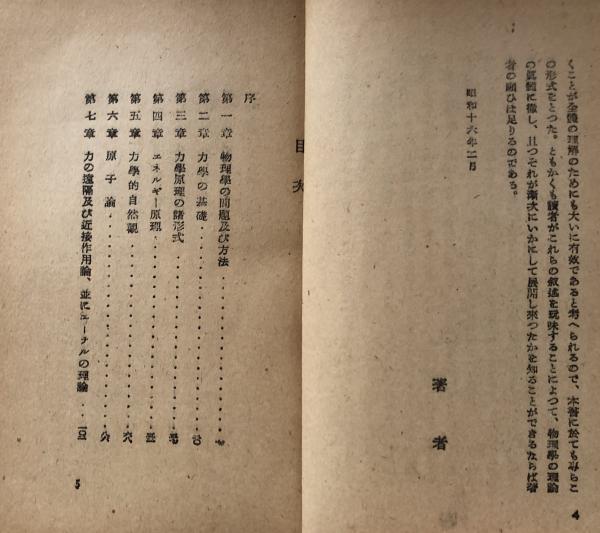 くことが全體の理解のためにも大いに有效であると考へられるので、本書に於てもみらこ
の形式をとつた。ともかくも讀者がこれらの敍述を玩味することによつて、物理學の理論
の眞髓に徹し、且つそれが漸次にいかにして展開し來つたかを知ることができるならば著
者の願ひは足りるのである。
昭和十六年二月
著者
4
目次
序
第一章 物理學の問題及び方法
第二章 力學の基礎
第三章 力學原理の諸形式
第四章 エネルギー原理
第五章 力學的自然觀
第六章 原子論
第七章 力の遠隔及び近接作用論、並にエーテルの理論
5